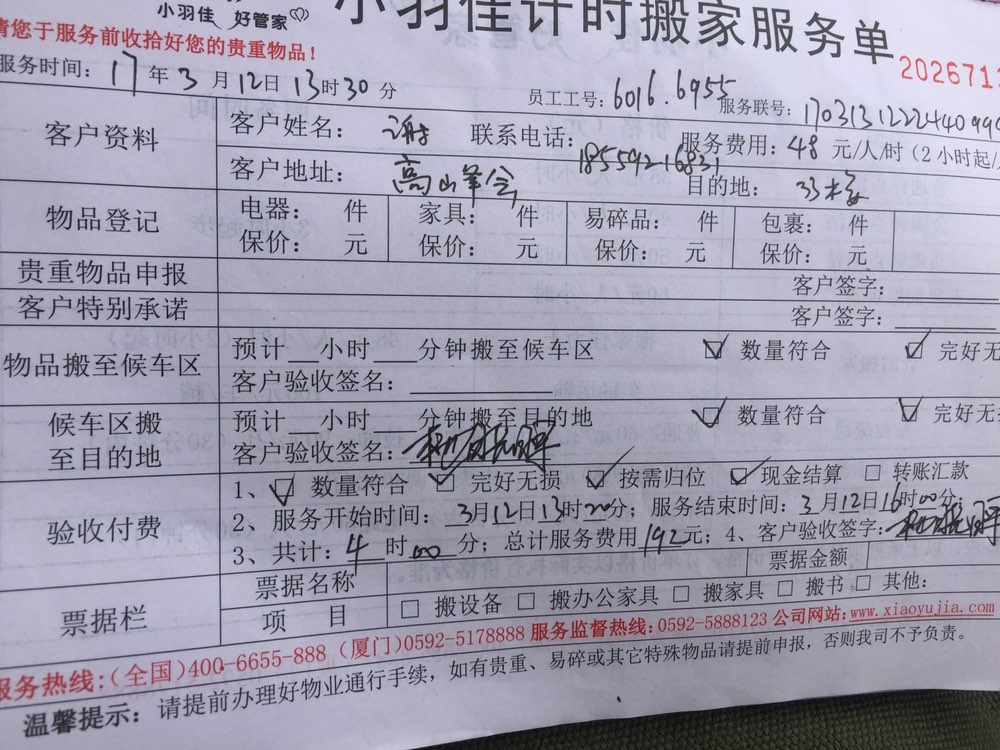 小羽佳 好管家
小羽佳计时搬家服务单
请您于服务前收拾好您的贵重物品！
2026713
服务时间：17年3月12日13时30分 员工工号：6016.6955 服务联号：170313122244099
客户资料
客户姓名： 谢 联系电话：18559216831 服务费用：48元/人/时（2小时起/
客户地址： 高山 目的地：
物品登记
电器： 件 家具： 件 易碎品： 件 包裹： 件
保价： 元 保价： 元 保价： 元 保价： 元
贵重物品申报 客户签字：
客户特别承诺 客户签字：
物品搬至候车区
预计 小时 分钟搬至候车区 ☑ 数量符合 ☑ 完好无
客户验收签名：
候车区搬至目的地
预计 小时 分钟搬至目的地 ☑ 数量符合 ☑ 完好无
客户验收签名：
验收付费
1、☑ 数量符合 ☑ 完好无损 ☑ 按需归位 ☑ 现金结算 □ 转账汇款
2、服务开始时间： 3月12日13时 分；服务结束时间：3月12日16时00分；
3、共计：4时00分；总计服务费用192元；4、客户验收签字：
票据栏
票据名称 票据金额
项 目 □ 搬设备 □ 搬办公家具 □ 搬家具 □ 搬书 □ 其他：
服务热线：(全国)400-6655-888 (厦门)0592-5178888 服务监督热线：0592-5888123 公司网站：www.xiaoyujia.com
温馨提示：请提前办理好物业通行手续，如有贵重、易碎或其它特殊物品请提前申报，否则我司不予负责。